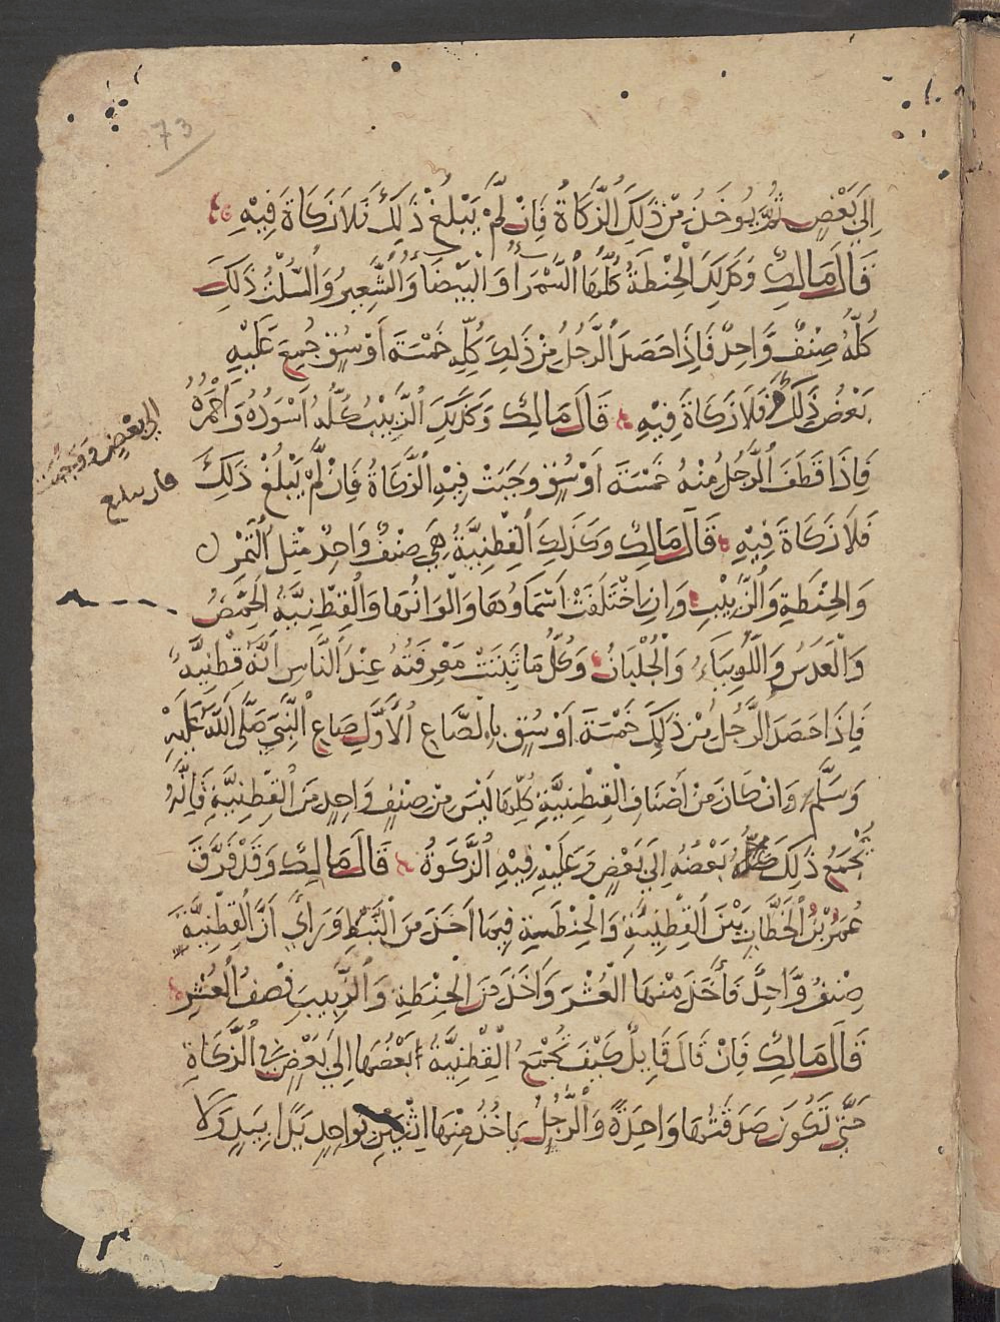 73
اِلَى بَعْضٍ ثُمَّ يُوخَذُ مِنْ ذَلِكَ الزَّكَاةُ فَاِنْ لَّمْ يَبْلُغْ ذَلِكَ فَلَا زَكَاةَ فِيْهِ
قَالَ مَالِكٌ وَكَذَلِكَ الْحِنْطَةُ كُلُّهَا السَّمْرَاُ وَالْبَيْضَاُ وَالشَّعِيرُ وَالسُّلْتُ ذَلِكَ
كُلُّهُ صِنْفٌ وَّاحِدٌ فَاِذَا حَصَدَ الرَّجُلُ مِنْ ذَلِكَ كُلِّهِ خَمْسَةَ اَوْسُقٍ جُمِعَ عَلَيْهِ
بَعْضُ ذَلِكَ فَلَا زَكَاةَ فِيْهِ قَالَ مَالِكٌ وَكَذَلِكَ الزَّبِيْبُ كُلُّهُ اَسْوَدُهُ وَاَحْمَرُهُ
اِلَى بَعْضٍ وَوَجَبَتْ
فان لم يبلغ
فَاِذَا قَطَفَ الرَّجُلُ مِنْهُ خَمْسَةَ اَوْسُقٍ وَجَبَتْ فِيْهِ الزَّكَاةُ فَاِنْ لَّمْ يَبْلُغْ ذَلِكَ
فَلَا زَكَاةَ فِيْهِ قَالَ مَالِكٌ وَكَذَلِكَ الْقِطْنِيَّةُ هِيَ صِنْفٌ وَاحِدٌ مِثْلُ التَّمْرِ
وَالْحِنْطَةِ وَالزَّبِيْبِ وَاِنِ اخْتَلَفَتْ اَسْمَاوُهَا وَاَلْوَانُهَا وَالْقِطْنِيَّةُ الْحِمَّصُ
وَالْعَدَسُ وَاللُّوبِيَاءُ وَالْجُلْبَانُ وَكُلُّ مَا ثَبَتَتْ مَعْرِفَتُهُ عِنْدَ النَّاسِ اَنَّهُ قُطْنِيَّةٌ
فَاِذَا حَصَدَ الرَّجُلُ مِنْ ذَلِكَ خَمْسَةَ اَوْسُقٍ بِالصَّاعِ الْاَوَّلِ صَاعِ النَّبِيِّ صَلَّى اللَّهُ عَلَيْهِ
وَسَلَّم وَاِنْ كَانَ مِنْ اَصْنَافِ الْقِطْنِيَّةِ كُلِّهَا لَيْسَ مِنْ صِنْفٍ وَاحِدٍ مِنَ الْقِطْنِيَّةِ فَاِنَّهُ
يُجْمَعُ ذَلِكَ بَعْضُهُ اِلَى بَعْضٍ وَعَلَيْهِ فِيْهِ الزَّكَوةُ قَالَ مَالِكٌ وَقَدْ فَرَّقَ
عُمَرُ بْنُ الْخَطَّابِ بَيْنَ الْقِطْنِيَّةِ وَالْحِنْطَةِ فِيمَا اَخَذَ مِنَ النَّبَطِ وَرَاَى اَنَّ الْقِطْنِيَّةَ
صِنْفٌ وَّاحِدٌ فَاَخَذَ مِنْهَا الْعُشْرَ وَاَخَذَ مِنَ الْحِنْطَةِ وَالزَّبِيبِ نِصْفَ الْعُشْرِ
قَالَ مَالِكٌ فَاِنْ قَالَ قَايِلٌ كَيْفَ تُجْمَعُ الْقِطْنِيَّةُ بَعْضُهَا اِلَى بَعْضٍ فِي الزَّكَاةِ
حَتَّى تَكُونَ صَدَقَتُهَا وَاحِدَةً وَالرَّجُلُ يَاخُذُ مِنْهَا اثْنَيْنِ بِوَاحِدٍ يَدًا بِيَدٍ وَلَا